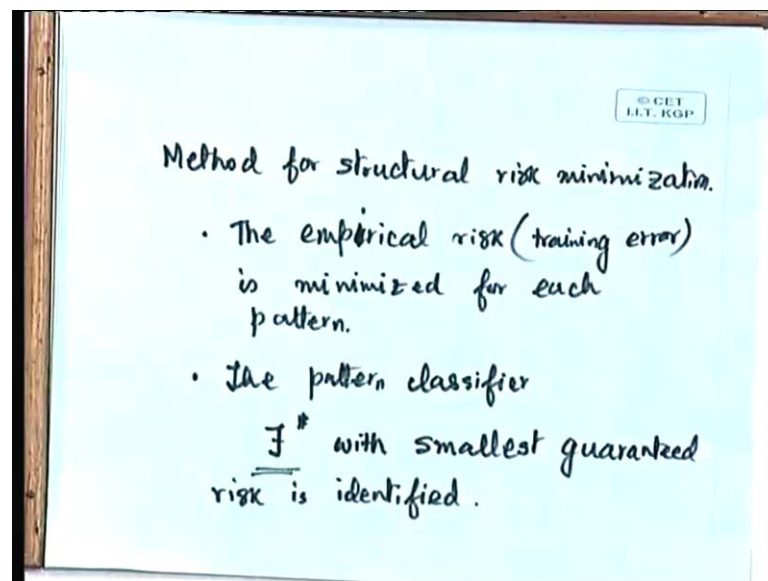 © CET
I.I.T. KGP
Method for structural risk minimization.
• The empirical risk (training error)
is minimized for each
pattern.
• The pattern classifier
Ƒ* with smallest guaranteed
risk is identified.